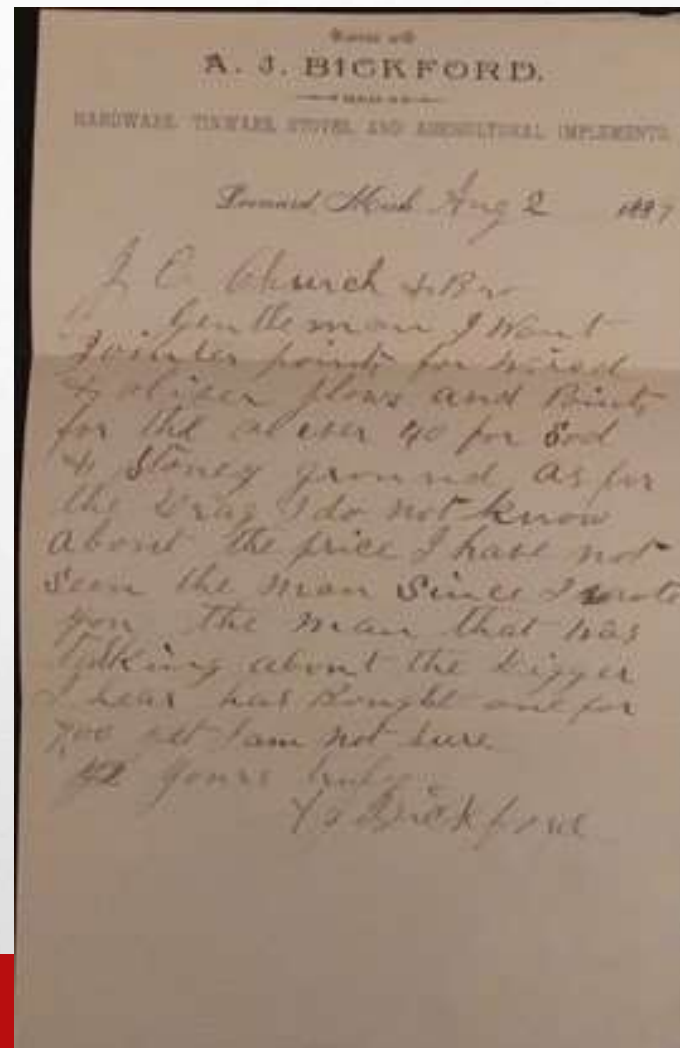 A. J. BICKFORD,
HARDWARE, TINWARE, STOVES, AND AGRICULTURAL IMPLEMENTS.
Leonard, Mich Aug 2 1887
J. C. Church & Bro
Gentleman I Want
Jointer points for
& oliver plows and Points
for the oliver 40 for Sod
& Stoney ground as for
the Drag I do not know
about the price I have not
Seen the man Since I wrote
you the man that was
Talking about the Digger
I hear has Bought one for
7.00 I am not sure
yours truly
Bickford